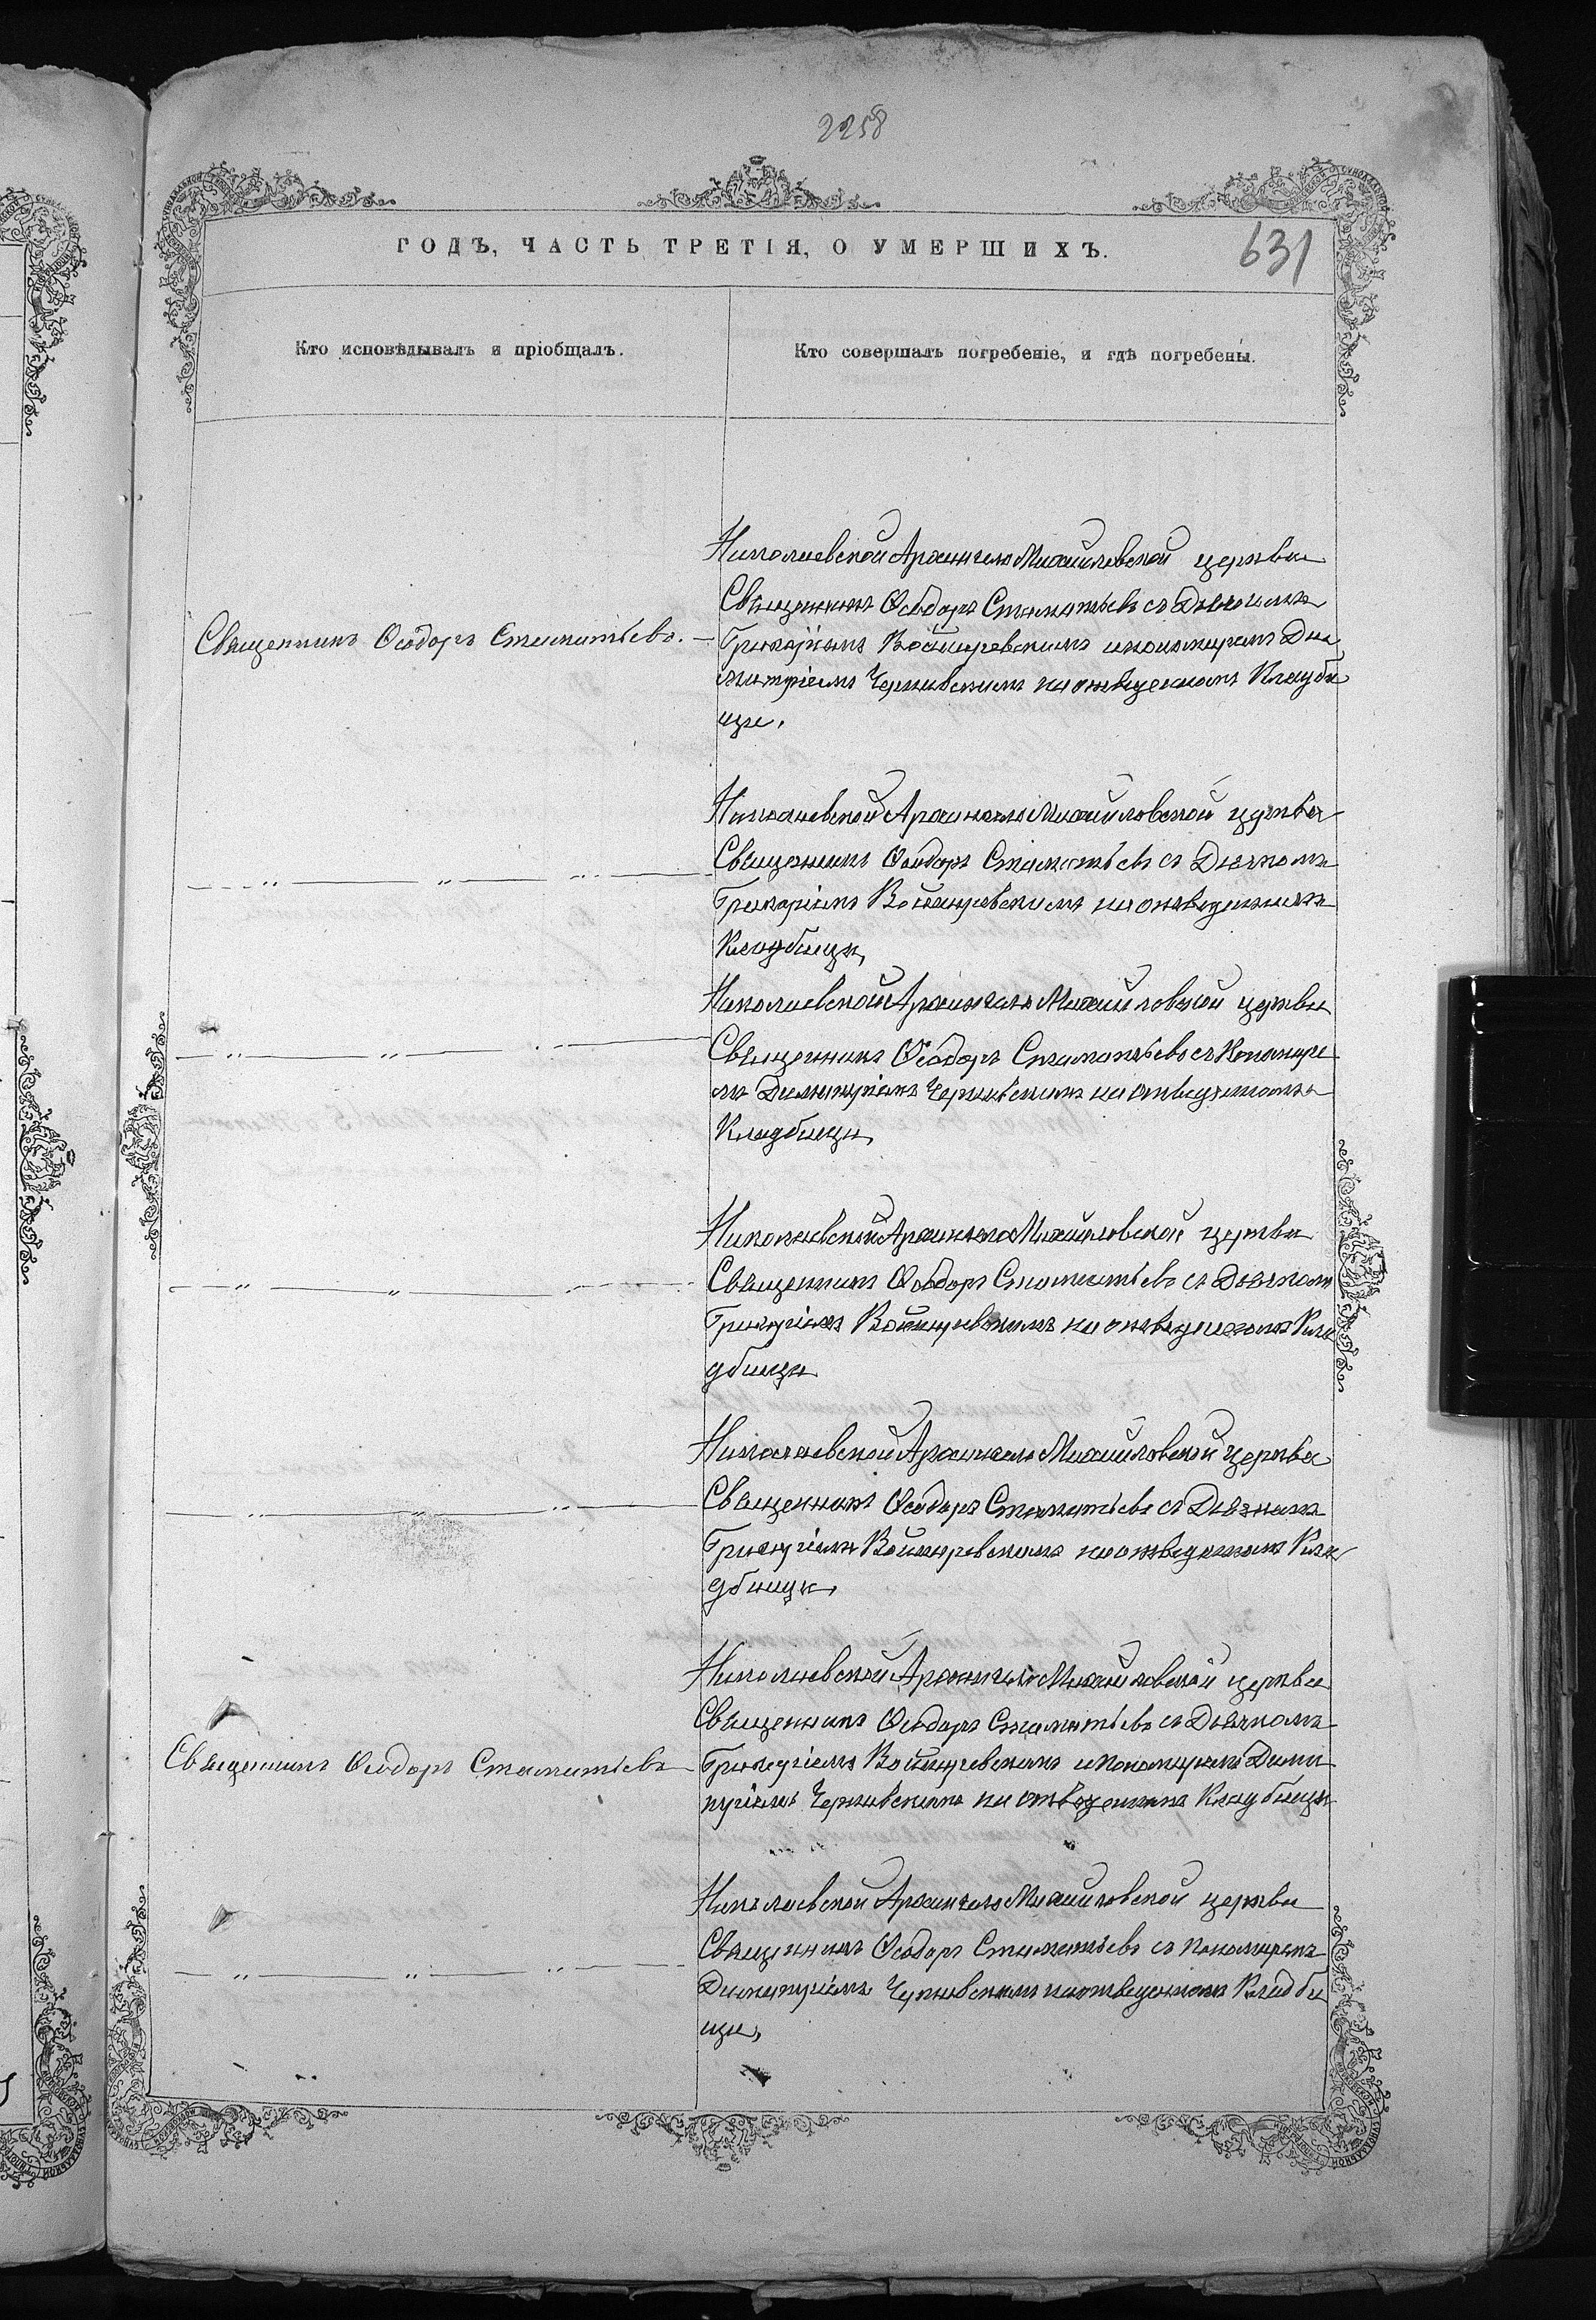 2258
ГОДЪ, ЧАСТЬ ТРЕТІЯ, О УМЕРШИХЪ.
631
Кто исповѣдывалъ и пріобщалъ.
Кто совершалъ погребеніе, и гдѣ погребены.
Николаевской Архангело Михайловской церкви
Священникъ Ѳеодоръ Стаматьевъ съ Дьячкомъ
Священникъ Ѳеодоръ Стаматьевъ.
Григоріемъ и пономаремъ Дми
митріемъ Чернявскимъ на отведенномъ Кладби
щи.
Николаевской Архангело Михайловской церкви
Священникъ Ѳеодоръ Стаматьевъ съ Дьячкомъ
— „ — „ — „ —
Григоріемъ на отведенномъ
Кладбищи,
Николаевской Архангело Михайловской церкви
Священникъ Ѳеодоръ Стаматьевъ съ Пономаре
— „ — „ — „ —
мъ Димитріемъ Чернявскимъ на отведенномъ
Кладбищи,
Николаевской Архангело Михайловской церкви
Священникъ Ѳеодоръ Стаматьевъ съ Дьячкомъ
— „ — „ — „ —
Григоріемъ на отведенномъ Кла
дбищи
Николаевской Архангело Михайловской церкви
Священникъ Ѳеодоръ Стаматьевъ съ Дьячкомъ
— „ — „ — „ —
Григоріемъ на отведенномъ Кла
дбищи,
Николаевской Архангело Михайловской церкви
Священникъ Ѳеодоръ Стаматьевъ съ Дьячкомъ
Священникъ Ѳеодоръ Стаматьевъ
Григоріемъ и пономаремъ Дими
тріемъ Чернявскимъ на отведенномъ Кладбищи
Николаевской Архангело Михайловской церкви
Священникъ Ѳеодоръ Стаматьевъ съ пономаремъ
— „ — „ — „ —
Димитріемъ Чернявскимъ на отведенномъ Кладби
щи,